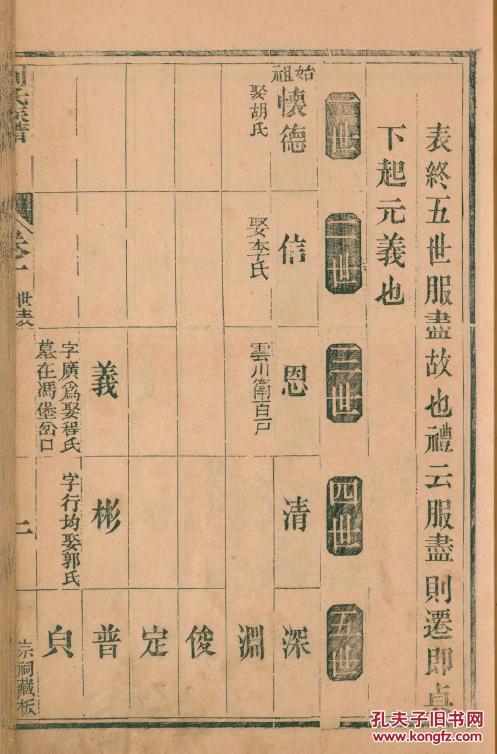 表終五世服盡故也禮云服盡則遷即
下起元義也
一世
二世
三世
四世
五世
始祖
懷德
娶胡氏
信
娶李氏
恩
雲川衛百戶
清
深
淵
俊
定
義
字廣爲娶程氏
墓在馮堡岔口
彬
字行均娶郭氏
普
貞
氏族譜
卷一
世表
二
宗祠藏板
孔夫子旧书网
www.kongfz.com